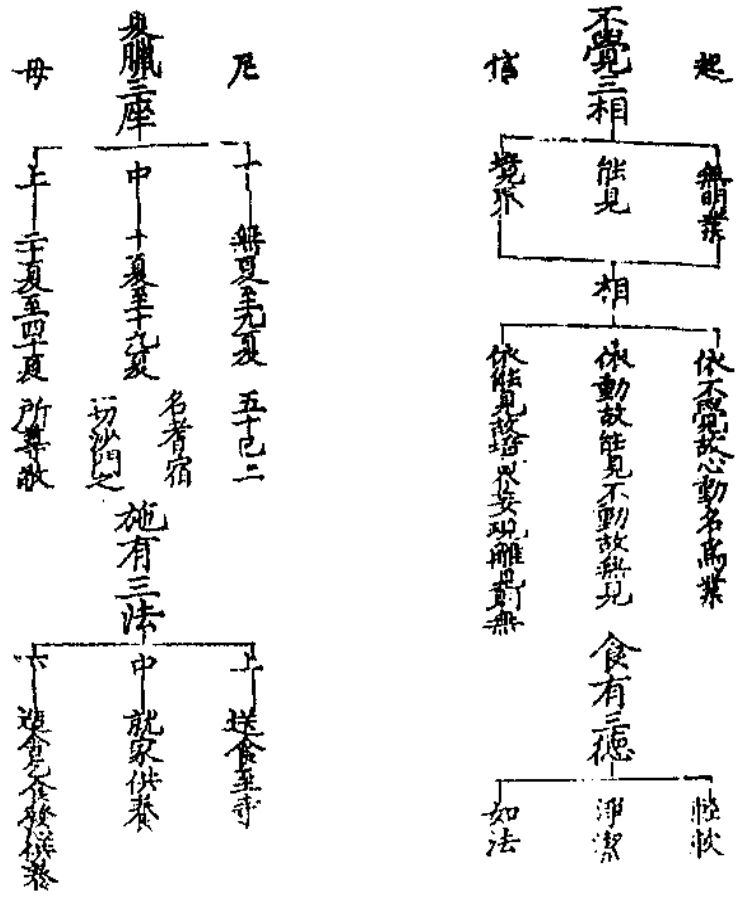 起信
不覺三相
無明業
能見
境界
相
依不覺故心動名為業
依動故能見不動故無見
依能見故境界妄現離見則無
食有三德
輕軟
淨潔
如法
尼母
夏臘三座
下
無夏至九夏
中
十夏至十九夏
上
二十夏至四十夏
五十已上
名耆宿
一切沙門之
所尊敬
施有三法
上
送食至寺
中
就家供養
下
供養